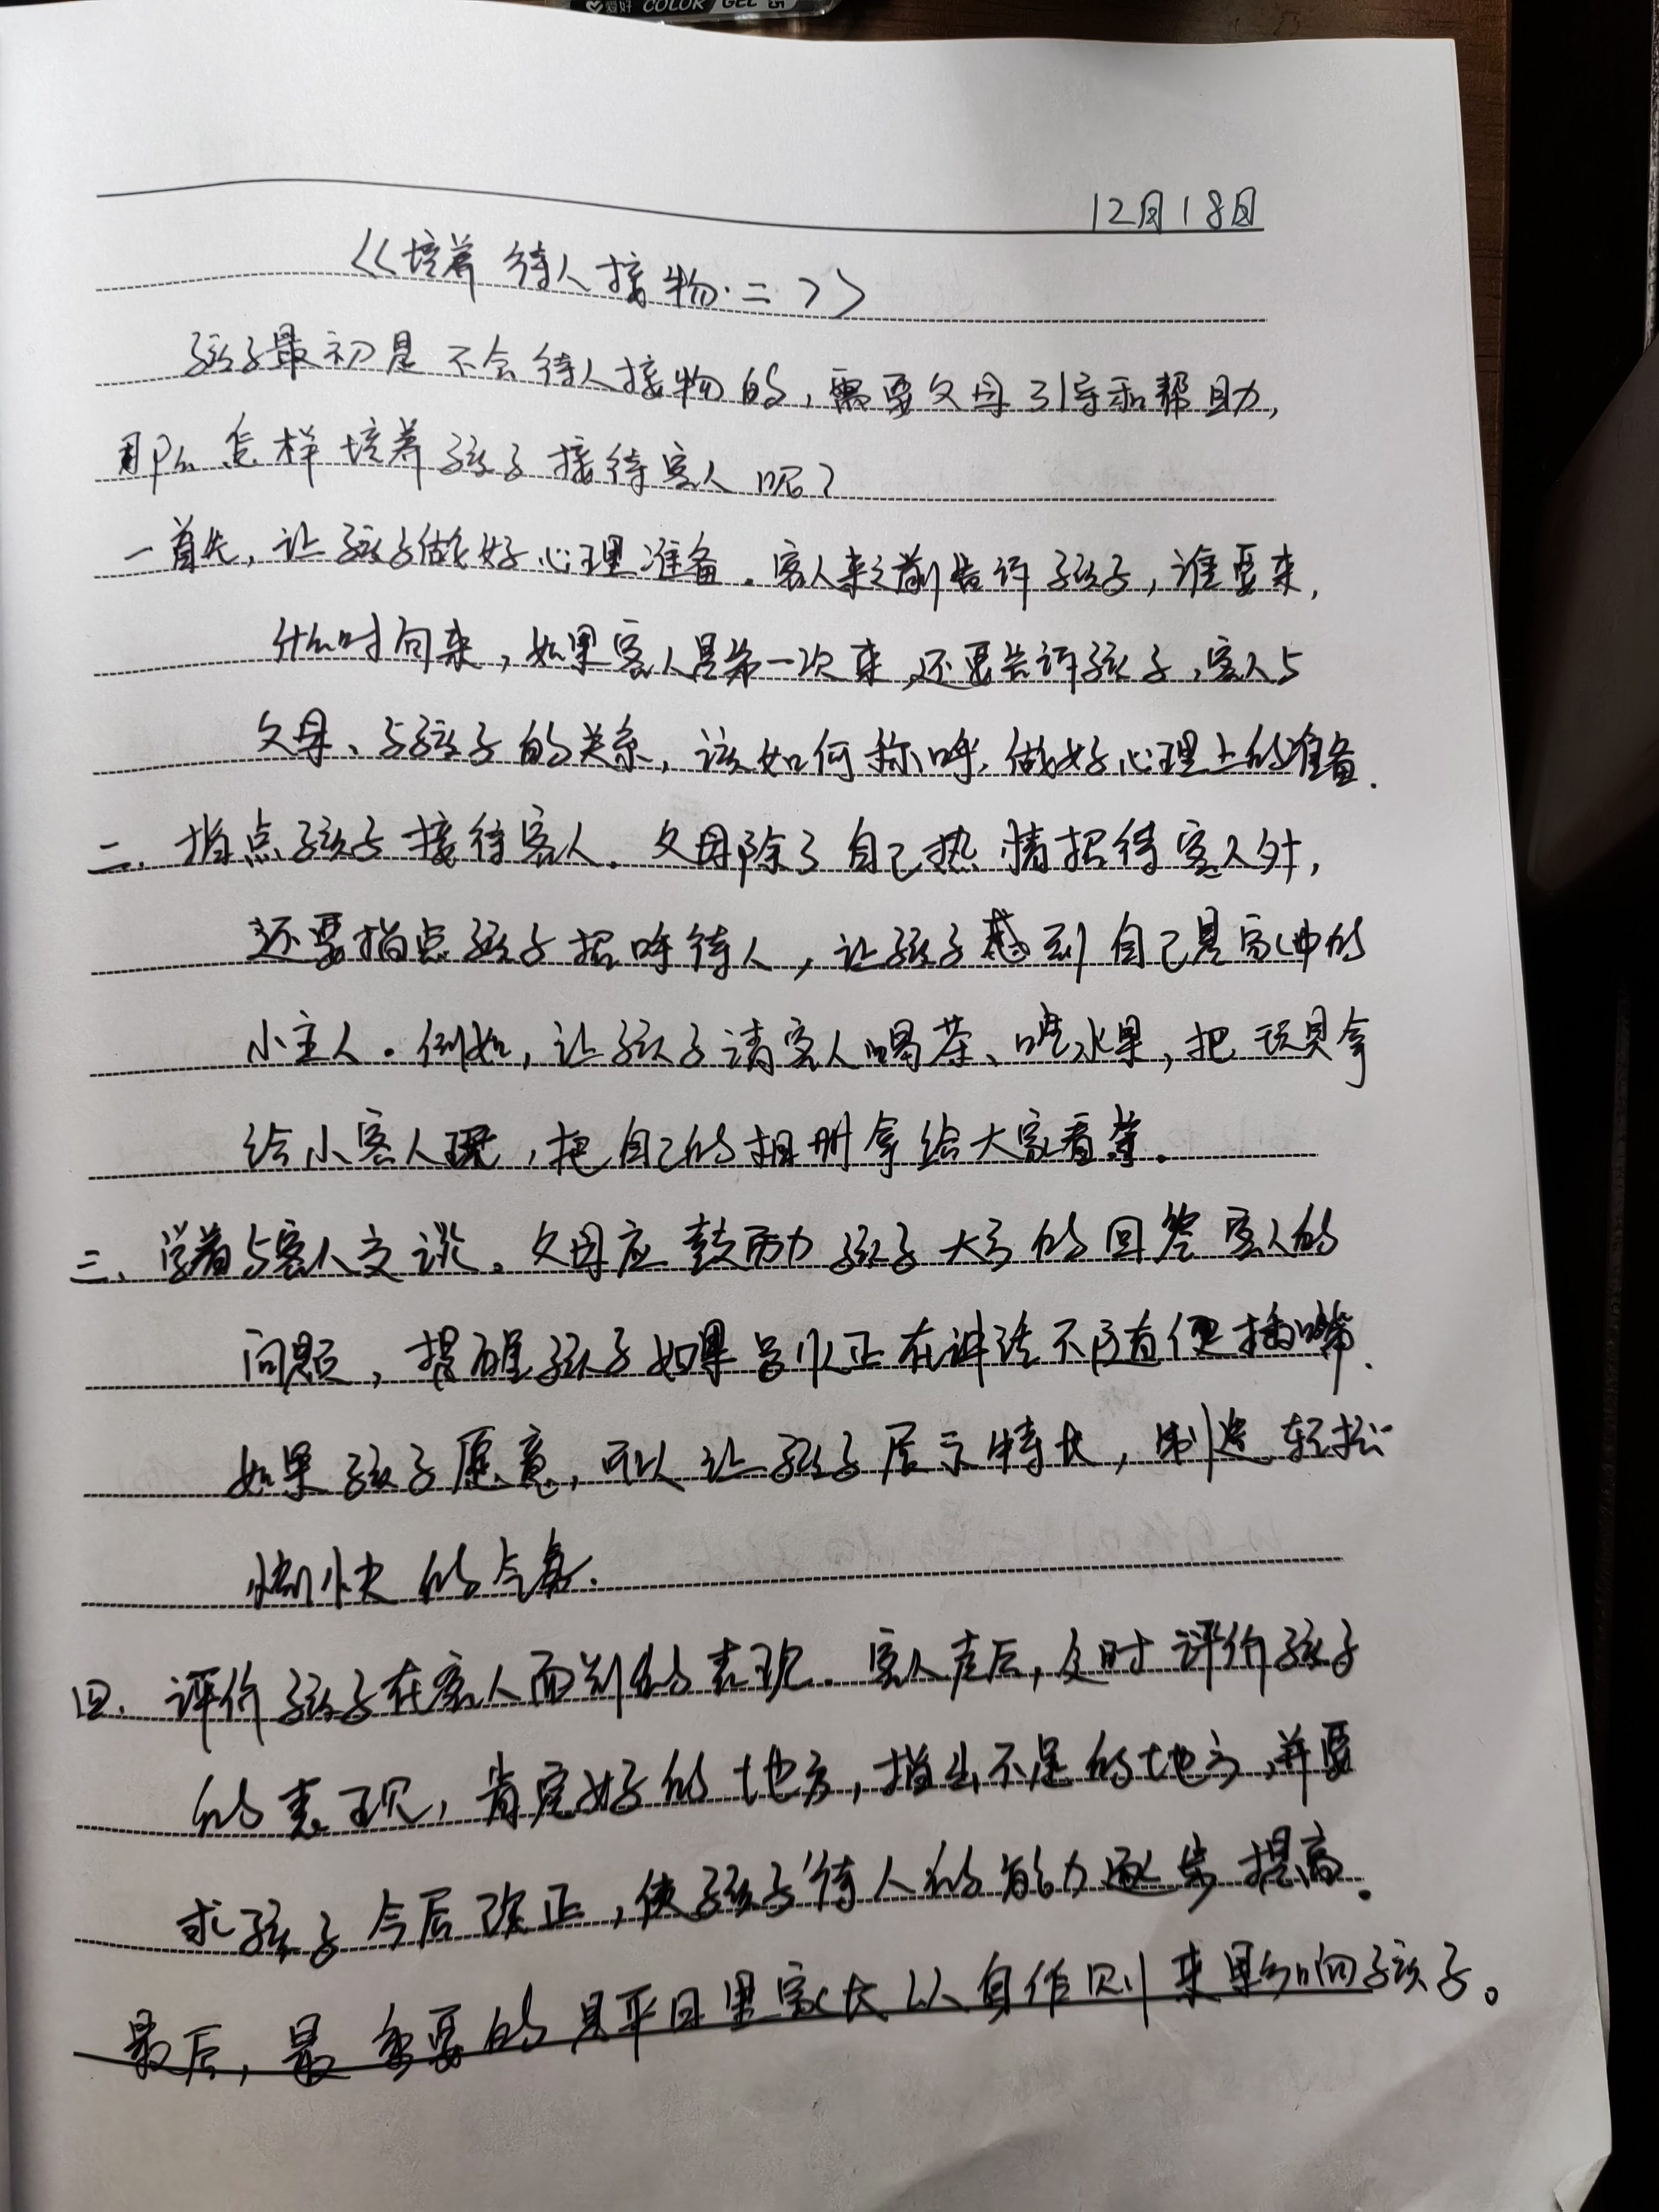 爱好 COLOR / GEL
12月18日
《培养待人接物·二》
孩子最初是不会待人接物的，需要父母引导和帮助，
那么怎样培养孩子接待客人呢？
一首先，让孩子做好心理准备。客人来之前告诉孩子，谁要来，
什么时间来，如果客人是第一次来，还要告诉孩子，客人与
父母、与孩子的关系，该如何称呼，做好心理上的准备.
二、指点孩子接待客人。父母除了自己热情招待客人外，
还要指点孩子招呼待人，让孩子感到自己是家中的
小主人。例如，让孩子请客人喝茶、吃水果，把玩具拿
给小客人玩，把自己的相册拿给大家看等。
三、学着与客人交谈。父母应鼓励孩子大方的回答客人的
问题，提醒孩子如果别人正在讲话不随便插嘴.
如果孩子愿意，可以让孩子展示特长，制造轻松
愉快的气氛.
四、评价孩子在客人面前的表现。客人走后，及时评价孩子
的表现，肯定好的地方，指出不足的地方，并要
求孩子今后改正，使孩子待人的能力逐步提高.
最后，最重要的是平日里家长以身作则来影响孩子。